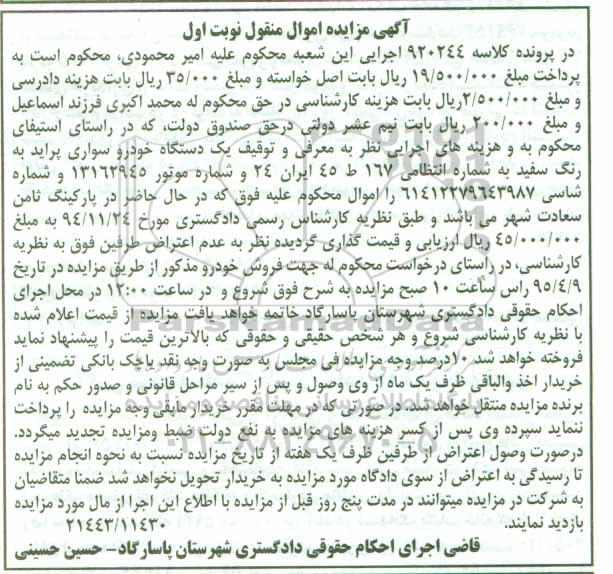 آگهی مزایده اموال منقول نوبت اول
در پرونده کلاسه ۹۲۰۲۴۴ اجرایی این شعبه محکوم علیه امیر محمودی، محکوم است به
پرداخت مبلغ ۱۹/۵۰۰/۰۰۰ ریال بابت اصل خواسته و مبلغ ۳۵/۰۰۰ ریال بابت هزینه دادرسی
و مبلغ ۲/۵۰۰/۰۰۰ریال بابت هزینه کارشناسی در حق محکوم له محمد اکبری فرزند اسماعیل
و مبلغ ۲۰۰/۰۰۰ ریال بابت نیم عشر دولتی درحق صندوق دولت، که در راستای استیفای
محکوم به و هزینه های اجرایی نظر به معرفی و توقیف یک دستگاه خودرو سواری پراید به
رنگ سفید به شماره انتظامی ۱۶۷ ط ۴۵ ایران ۲۴ و شماره موتور ۱۳۱۶۲۹۴۵ و شماره
شاسی ۶۱۴۱۲۲۷۹۶۴۳۹۸۷ را اموال محکوم علیه فوق که در حال حاضر در پارکینگ ثامن
سعادت شهر می باشد و طبق نظریه کارشناس رسمی دادگستری مورخ ۹۴/۱۱/۲۴ به مبلغ
۴۵/۰۰۰/۰۰۰ ریال ارزیابی و قیمت گذاری گردیده نظر به عدم اعتراض طرفین فوق به نظریه
کارشناسی، در راستای درخواست محکوم له جهت فروش خودرو مذکور از طریق مزایده در تاریخ
۹۵/۴/۹ راس ساعت ۱۰ صبح مزایده به شرح فوق شروع و در ساعت ۱۲:۰۰ در محل اجرای
احکام حقوقی دادگستری شهرستان پاسارگاد خاتمه خواهد یافت مزایده از قیمت اعلام شده
با نظریه کارشناسی شروع و هر شخص حقیقی و حقوقی که بالاترین قیمت را پیشنهاد نماید
فروخته خواهد شد. ۱۰درصد وجه مزایده فی مجلس به صورت وجه نقد یاچک بانکی تضمینی از
خریدار اخذ والباقی ظرف یک ماه از وی وصول و پس از سیر مراحل قانونی و صدور حکم به نام
برنده مزایده منتقل خواهد شد. در صورتی که در مهلت مقرر خریدار مابقی وجه مزایده را پرداخت
ننماید سپرده وی پس از کسر هزینه های مزایده به نفع دولت ضبط ومزایده تجدید میگردد.
درصورت وصول اعتراض از طرفین ظرف یک هفته از تاریخ مزایده نسبت به نحوه انجام مزایده
تا رسیدگی به اعتراض از سوی دادگاه مورد مزایده به خریدار تحویل نخواهد شد ضمنا متقاضیان
به شرکت در مزایده میتوانند در مدت پنج روز قبل از مزایده با اطلاع این اجرا از مال مورد مزایده
بازدید نمایند. ۲۱۴۴۳/۱۱۴۳۰
قاضی اجرای احکام حقوقی دادگستری شهرستان پاسارگاد- حسین حسینی
ParsNamadData
پایگاه اطلاع رسانی مناقصه و مزایده
۰۲۱-۸۸۳۴۹۶۷۰-۵